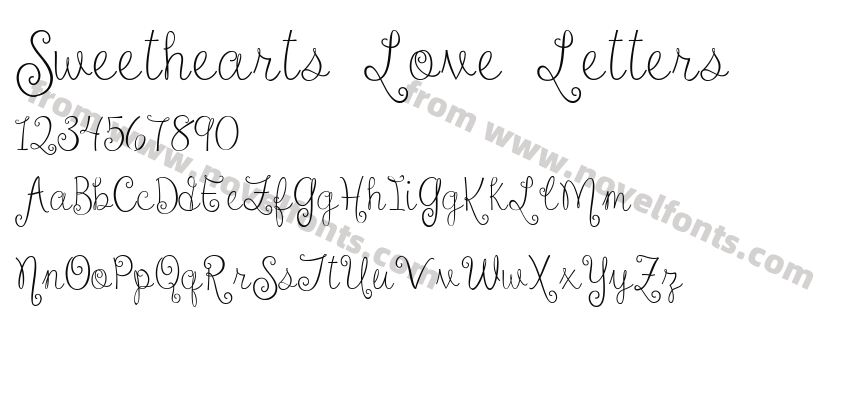 Sweethearts Love Letters
1234567890
AaBbCcDdEeFfGgHhIiGgKkLlMm
NnOoPpQqRrSsTtUuVvWwXxYyZz
from www.novelfonts.com
from www.novelfonts.com